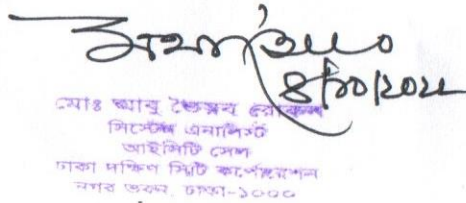 ৪/১০/২০২২
মোঃ আবু তৈয়ব রোকন
সিস্টেম এনালিস্ট
আইসিটি সেল
ঢাকা দক্ষিণ সিটি কর্পোরেশন
নগর ভবন, ঢাকা-১০০০